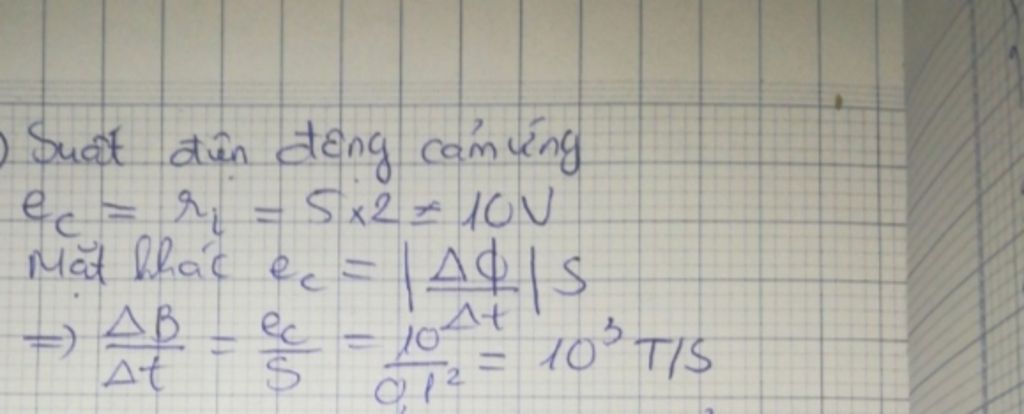 ) Suất điện động cảm ứng
e_c = r_i = 5 x 2 = 10V
Mặt khác e_c = |ΔΦ/Δt| S
=> ΔB/Δt = e_c/S = 10/0,1² = 10³ T/S